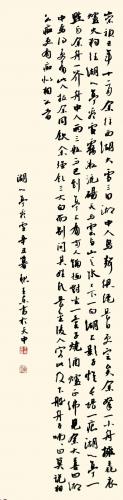 崇禎五年十二月余住西湖大雪三日湖中人鳥聲俱絕是日更定矣余拏一小舟擁毳衣
爐火獨往湖心亭看雪霧凇沆碭天與雲與山與水上下一白湖上影子惟長堤一痕湖心亭一
點與余舟一芥舟中人兩三粒而已到亭上有兩人鋪氈對坐一童子燒酒爐正沸見余大喜曰湖
中焉得更有此人拉余同飲余強飲三大白而別問其姓氏是金陵人客此及下船舟子喃喃曰莫說相
公癡更有癡似相公者
湖心亭看雪辛丑暮秋書於天中